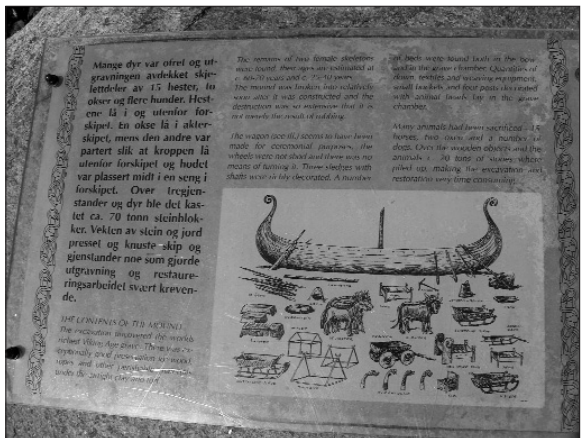 Mange dyr var ofret og ut-
gravningen avdekket skje-
lettdeler av 15 hester, to
okser og flere hunder. Hest-
ene lå i og utenfor for-
skipet. En okse lå i akter-
skipet, mens den andre var
partert slik at kroppen lå
utenfor forskipet og hodet
var plassert midt i en seng i
forskipet. Over tregjen-
stander og dyr ble det kas-
tet ca. 70 tonn steinblok-
ker. Vekten av stein og jord
presset og knuste skip og
gjenstander noe som gjorde
utgravning og restaure-
ringsarbeidet svært kreven-
de.
THE CONTENTS OF THE MOUND
The excavation uncovered the worlds
richest Viking Age grave. There was ex-
ceptionally good preservation for wood,
under the airtight clay and turf.
The remains of two female skeletons
were found, their ages are estimated at
c. 60-70 years and c. 25-30 years.
The mound was broken into relatively
soon after it was constructed and the
destruction was so extensive that it is
not merely the result of robbing.
The wagon (see ill.) seems to have been
made for ceremonial purposes, the
wheels were not shod and there was no
means of turning it. Three sledges with
shafts were richly decorated. A number
of beds were found both in the bow
and in the grave chamber. Quantities of
down, textiles and weaving equipment,
small buckets and four posts decorated
with animal heads lay in the grave
chamber.
Many animals had been sacrificed - 15
horses, two oxen and a number of
dogs. Over the wooden objects and the
animals c. 70 tons of stones where
piled up, making the excavation and
restoration very time consuming.